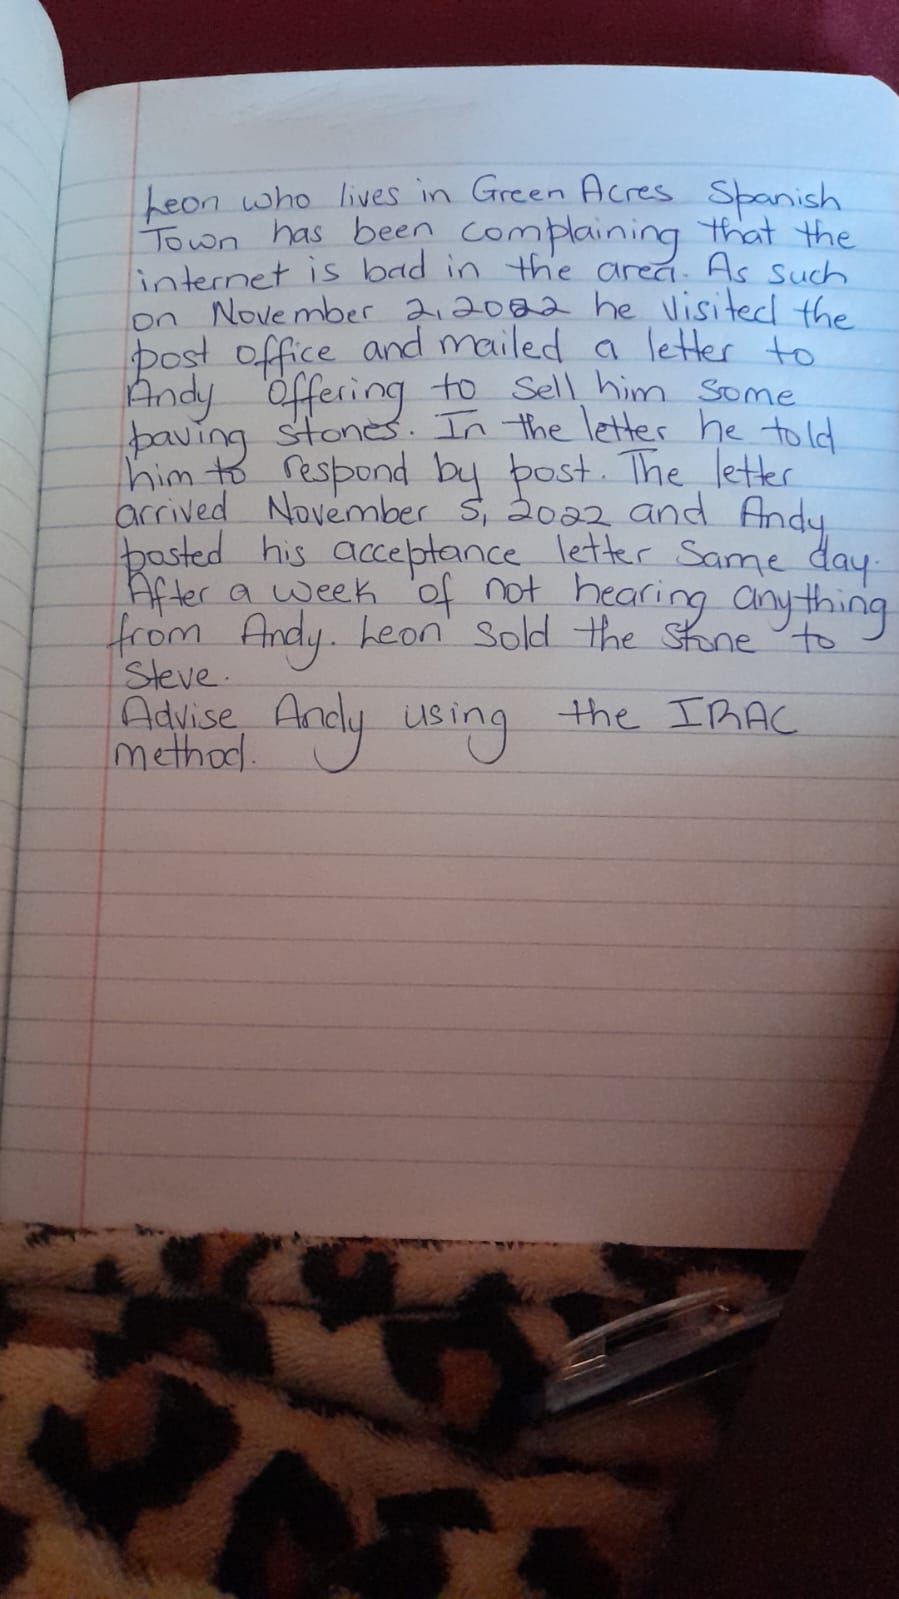 Leon who lives in Green Acres Spanish
Town has been complaining that the
internet is bad in the area. As such
on November 2, 2022 he visited the
post office and mailed a letter to
Andy offering to sell him some
paving stones. In the letter he told
him to respond by post. The letter
arrived November 5, 2022 and Andy
posted his acceptance letter same day.
After a week of not hearing anything
from Andy. Leon sold the stone to
Steve.
Advise Andy using the IRAC
method.